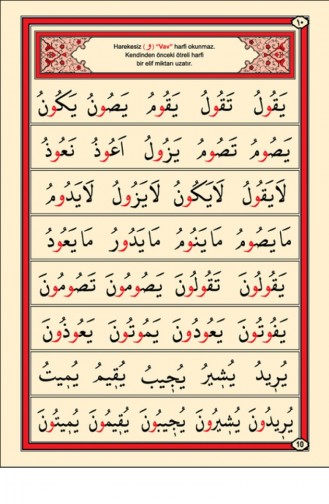 ١٠
Harekesiz (و) "Vav" harfi okunmaz.
Kendinden önceki ötreli harfi
bir elif miktarı uzatır.
يَقُولُ تَقُولُ يَقُومُ يَصُونُ يَكُونُ
يَصُومُ تَصُومُ يَزُولُ اَعُوذُ نَعُوذُ
لَايَقُولُ لَايَكُونُ لَايَزُولُ لَايَدُومُ
مَايَصُومُ مَايَنُومُ مَايَدُورُ مَايَعُودُ
يَقُولُونَ تَقُولُونَ يَصُومُونَ تَصُومُونَ
يَفُوتُونَ يَعُودُونَ يَمُوتُونَ يَعُوذُونَ
يُرِيدُ يُشِيرُ يُجِيبُ يُقِيمُ يُمِيتُ
يُرِيدُونَ يُشِيرُونَ يُجِيبُونَ يُقِيمُونَ يُمِيتُونَ
10